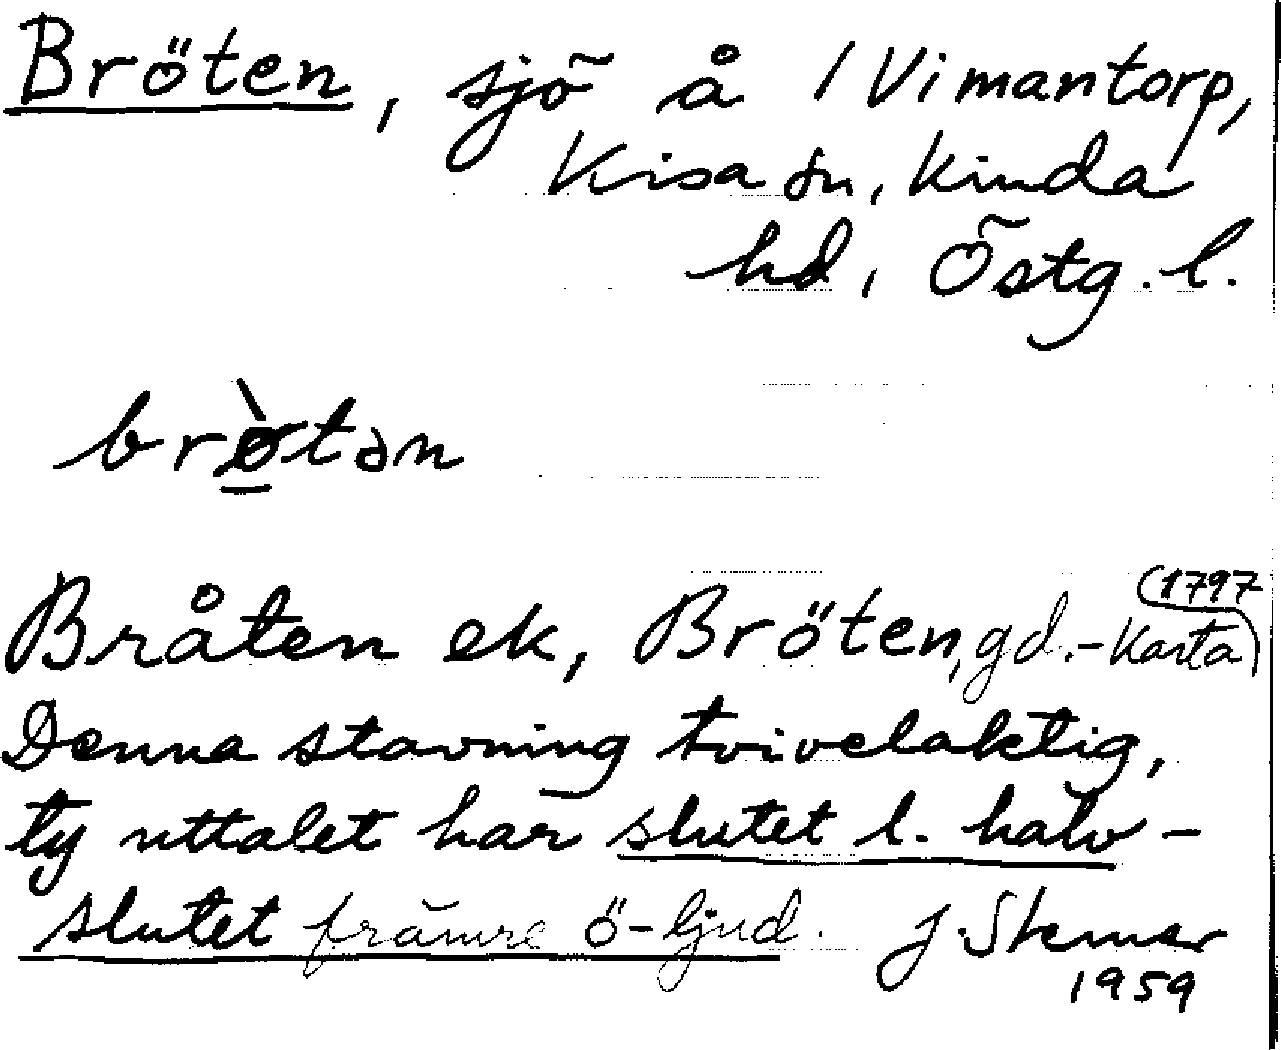 Bröten, sjö å /Vimantorp,
Kisa sn, Kinda
hd, Östg. l.
brø̀tən
Bråten ek, Bröten, gd. – (1797 Karta)
Denna stavning tvivelaktig,
ty uttalet har slutet l. halv-
slutet främre ö-ljud. J. Stemer
1959